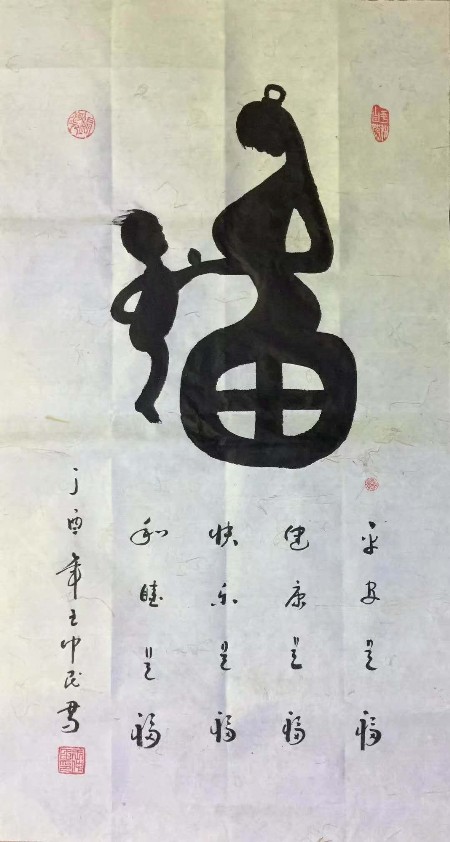 福
平安是福
健康是福
快乐是福
和睦是福
丁酉年王中民书